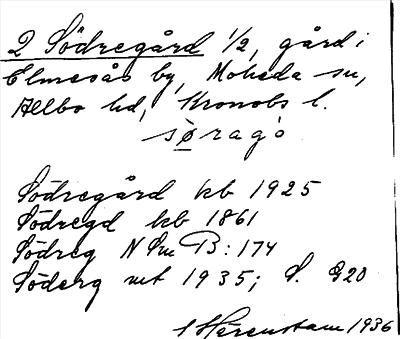 2 Södregård 1/2, gård i
Elmesås by, Moheda sn,
Allbo hd, Kronobs l.
søragó
Södregård kb 1925
Södregd kb 1861
Södreg N Sm B: 174
Söderg mt 1935; S. G20
Herenstam 1936